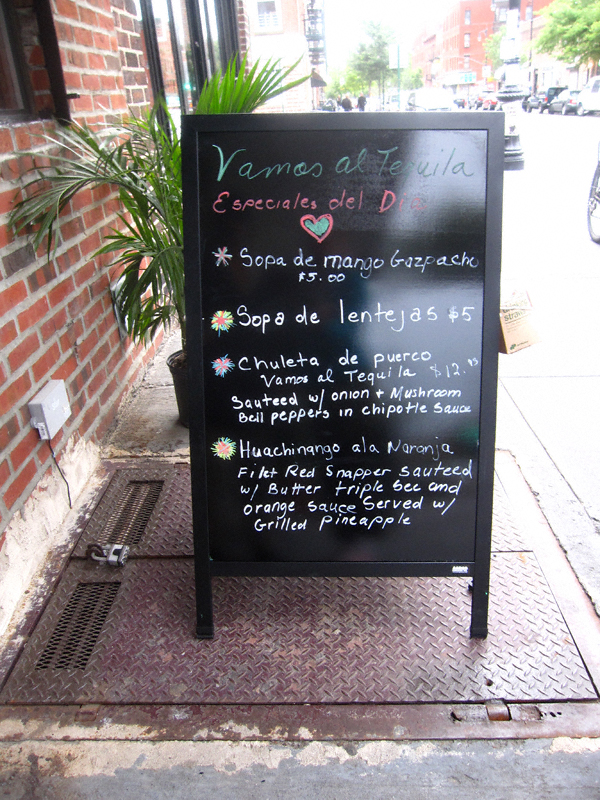 Vamos al Tequila
Especiales del Dia
Sopa de mango Gazpacho
$5.00
Sopa de lentejas $5
Chuleta de puerco
Vamos al Tequila $12.95
Sauteed w/ onion + Mushroom
Bell peppers in chipotle sauce
Huachinango ala Naranja
Filet Red Snapper sauteed
w/ Butter triple sec and
orange sauce Served w/
Grilled pineapple